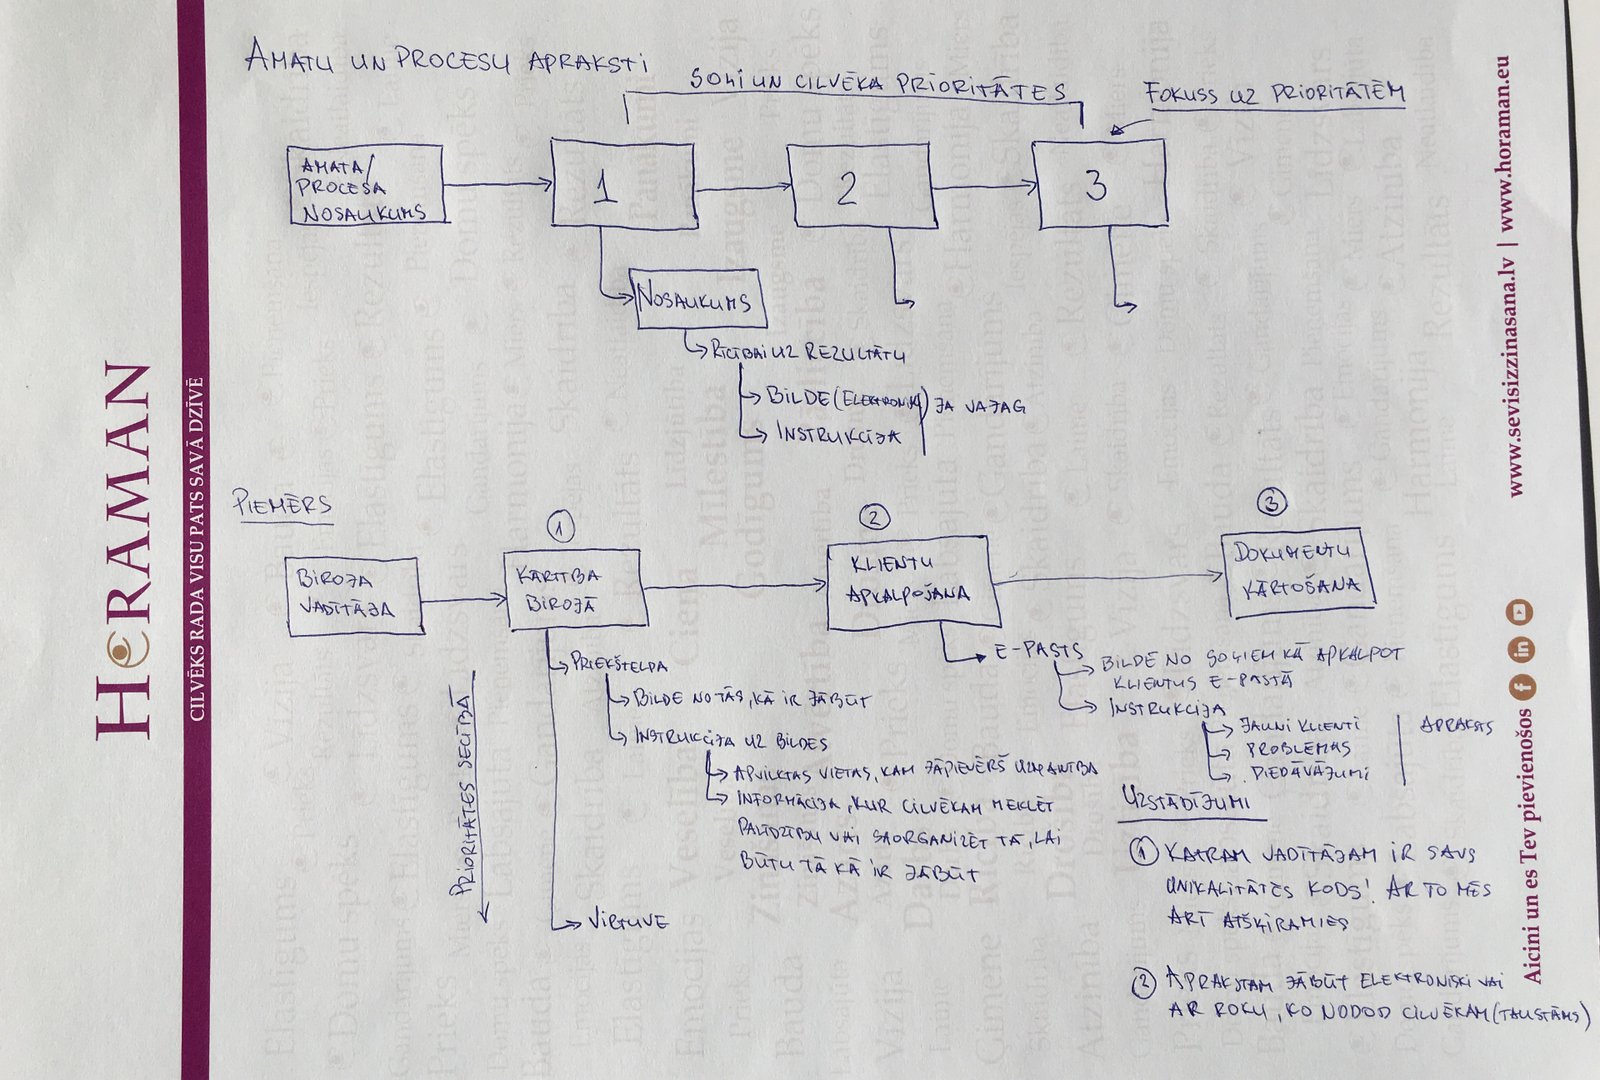 AMATU UN PROCESU APRAKSTI
SOĻI UN CILVĒKA PRIORITĀTES
FOKUSS UZ PRIORITĀTĒM
AMATA/
PROCESA
NOSAUKUMS
1
2
3
NOSAUKUMS
RĪCĪBAI UZ REZULTĀTU
BILDE (ELEKTRONISKI) JA VAJAG
INSTRUKCIJA
PIEMĒRS
1
2
3
BIROJA
VADĪTĀJA
KĀRTĪBA
BIROJĀ
KLIENTU
APKALPOŠANA
DOKUMENTU
KĀRTOŠANA
PRIORITĀTES SECĪBĀ
PRIEKŠTELPA
BILDE NO TĀS, KĀ IR JĀBŪT
INSTRUKCIJA UZ BILDES
APVILKTAS VIETAS, KAM JĀPIEVĒRŠ UZMANĪBA
INFORMĀCIJA, KUR CILVĒKAM MEKLĒT
PALĪDZĪBU VAI SAORGANIZĒT TĀ, LAI
BŪTU TĀ KĀ IR JĀBŪT
VIRTUVE
E-PASTS
BILDE NO SOĻIEM KĀ APKALPOT
KLIENTUS E-PASTĀ
INSTRUKCIJA
JAUNI KLIENTI
PROBLĒMAS
PIEDĀVĀJUMI
APRAKSTS
UZSTĀDĪJUMI
1 KATRAM VADĪTĀJAM IR SAVS
UNIKALITĀTES KODS! AR TO MĒS
ARĪ ATŠĶIRAMIES
2 APRAKSTAM JĀBŪT ELEKTRONISKI VAI
AR ROKU, KO NODOD CILVĒKAM (TAUSTĀMS)
HORAMAN
CILVĒKS RADA VISU PATS SAVĀ DZĪVĒ
www.sevisizzinasana.lv | www.horaman.eu
Aicini un es Tev pievienošos